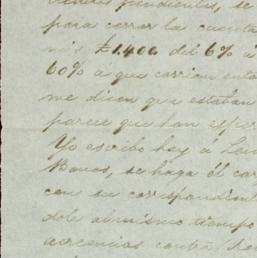 pendientes, se
para cerrar la cuenta
mis £1.400 del 6% á
60% á que corrian
me dicen que estaban
parece que han
Yo escribo hoy á
Bonos, se haga él
con su correspondiente
dole al mismo tiempo
contra